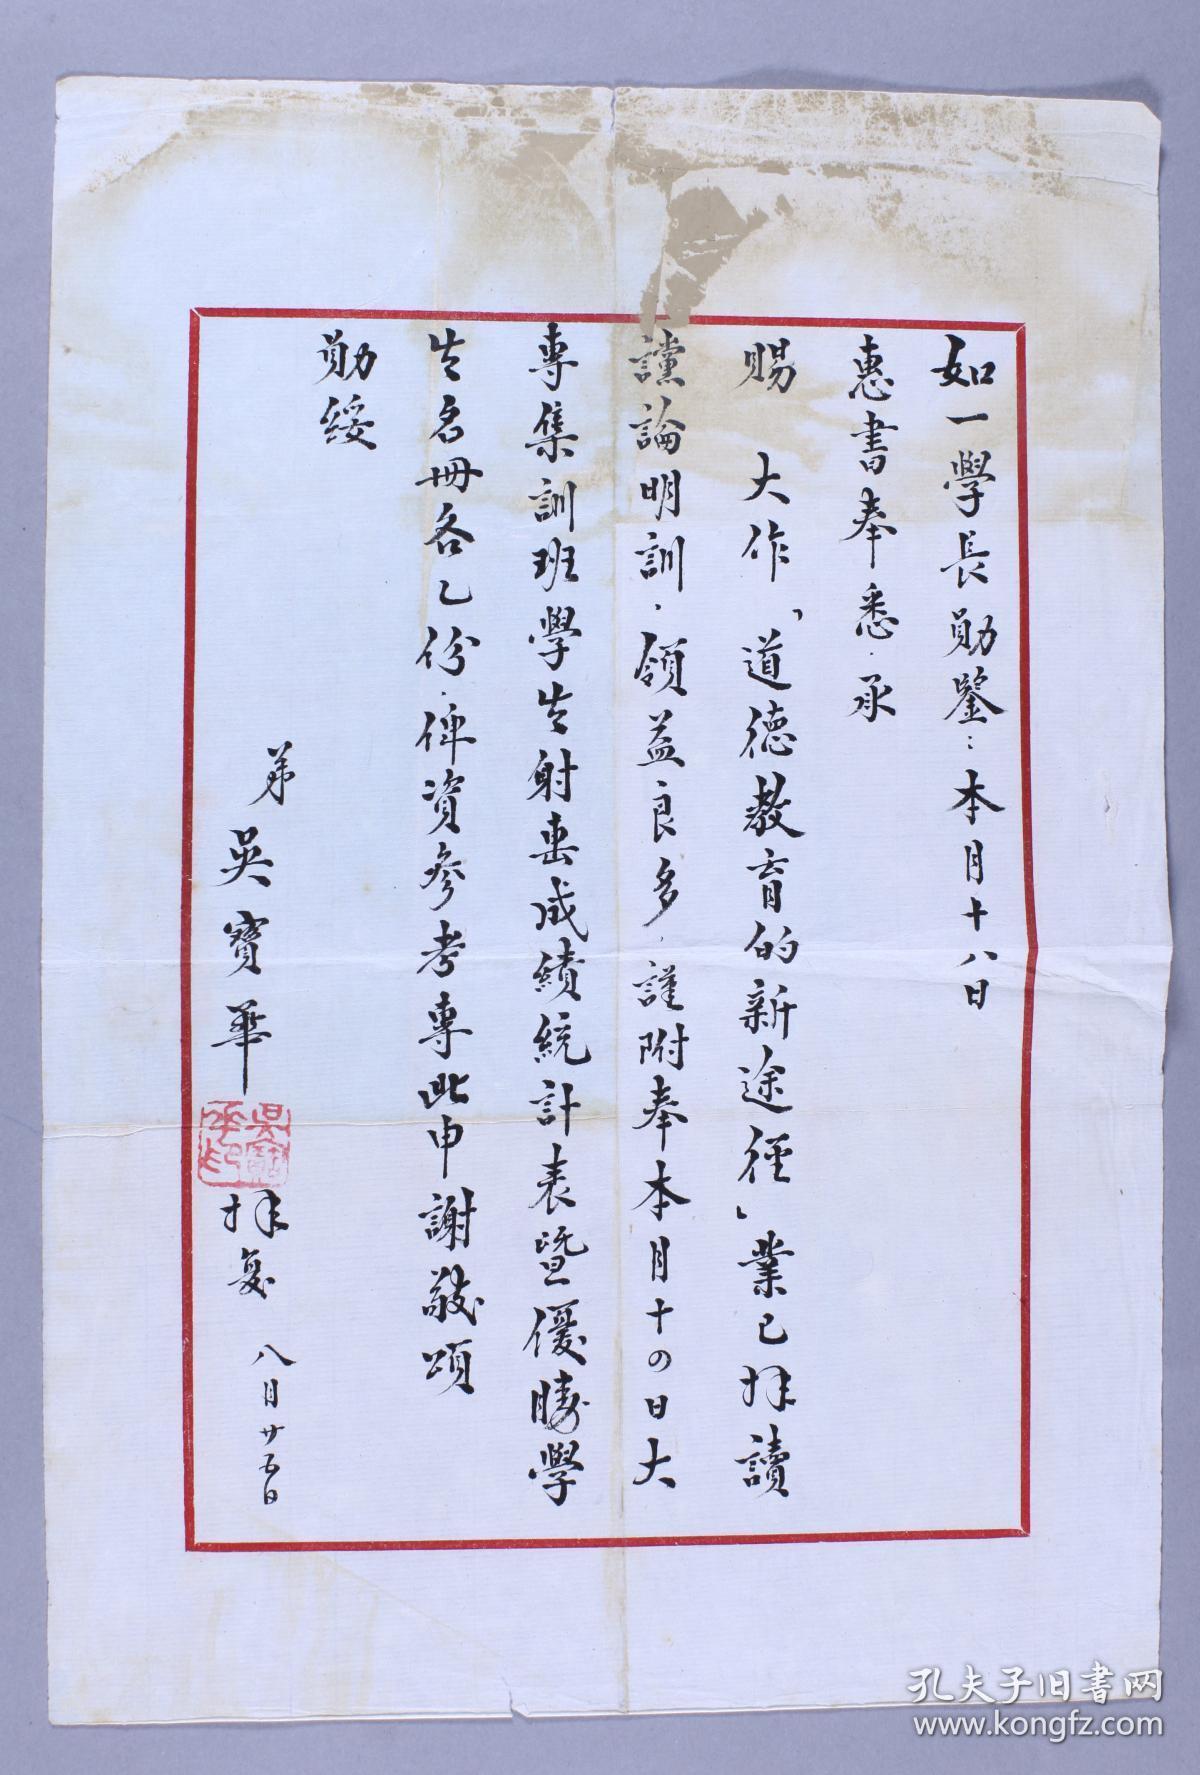 如一學長勛鑒：本月十八日
惠書奉悉．承
賜　大作「道德教育的新途徑」業已拜讀
讜論明訓，領益良多，謹附奉本月十四日大
專集訓班學生射擊成績統計表暨優勝學
生名冊各乙份，俾資參考專此申謝敬頌
勛綏
弟吳寶華
吳寶華印
拜复　八月廿五日
孔夫子旧書网
www.kongfz.com